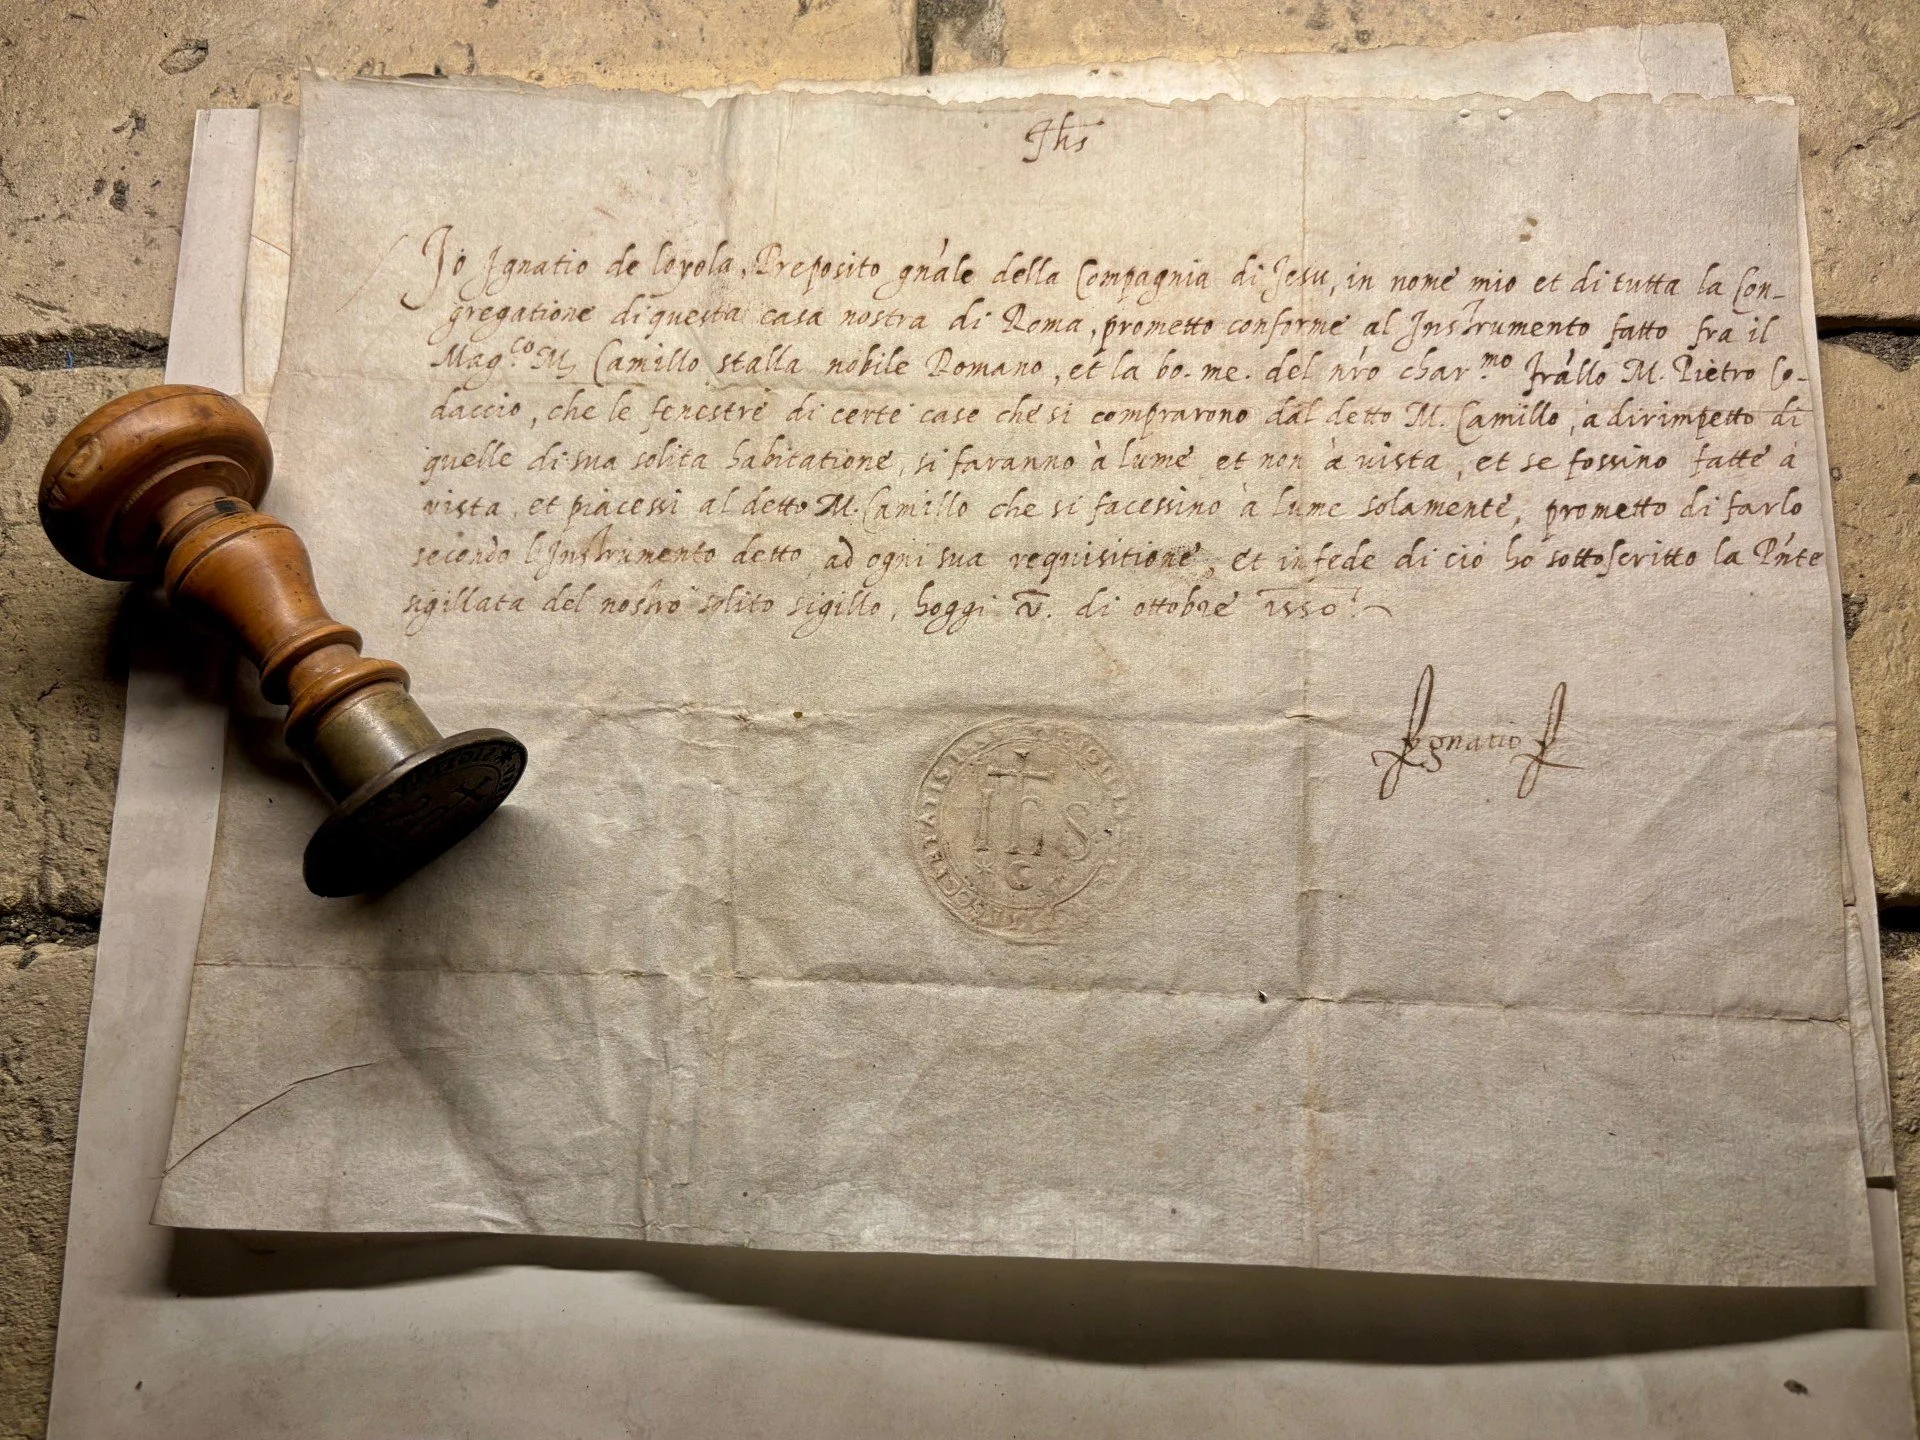 Jhs
Io Ignatio de loyola, Preposito gn'ale della Compagnia di Jesu, in nome mio et di tutta la Con-
gregatione di questa casa nostra di Roma, prometto conforme al Instrumento fatto fra il
Mag.co M. Camillo stalla nobile Romano, et la bo. me. del nr'o char.mo fra'llo M. Pietro Co-
daccio, che le fenestre di certe case che si comprarono dal detto M. Camillo, a dirimpetto di
quelle di sua solita habitatione, si faranno à lume et non à vista, et se fossino fatte à
vista, et piacessi al detto M. Camillo che si facessino à lume solamente, prometto di farlo
secondo l'Instrumento detto, ad ogni sua requisitione, et in fede di ciò ho sottoscritto la Pn'te
sigillata del nostro solito sigillo, hoggi v. di ottobre 1550.
Ignatio
IHS